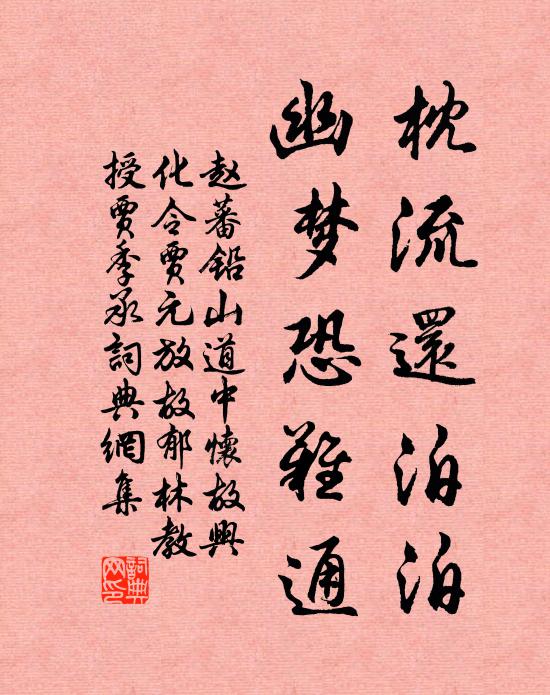 枕流還泊泊
幽梦恐難通
赵蕃鉛山道中懷故興
化令賈元放故郁林教
授賈季承詞典網集
詞典网印